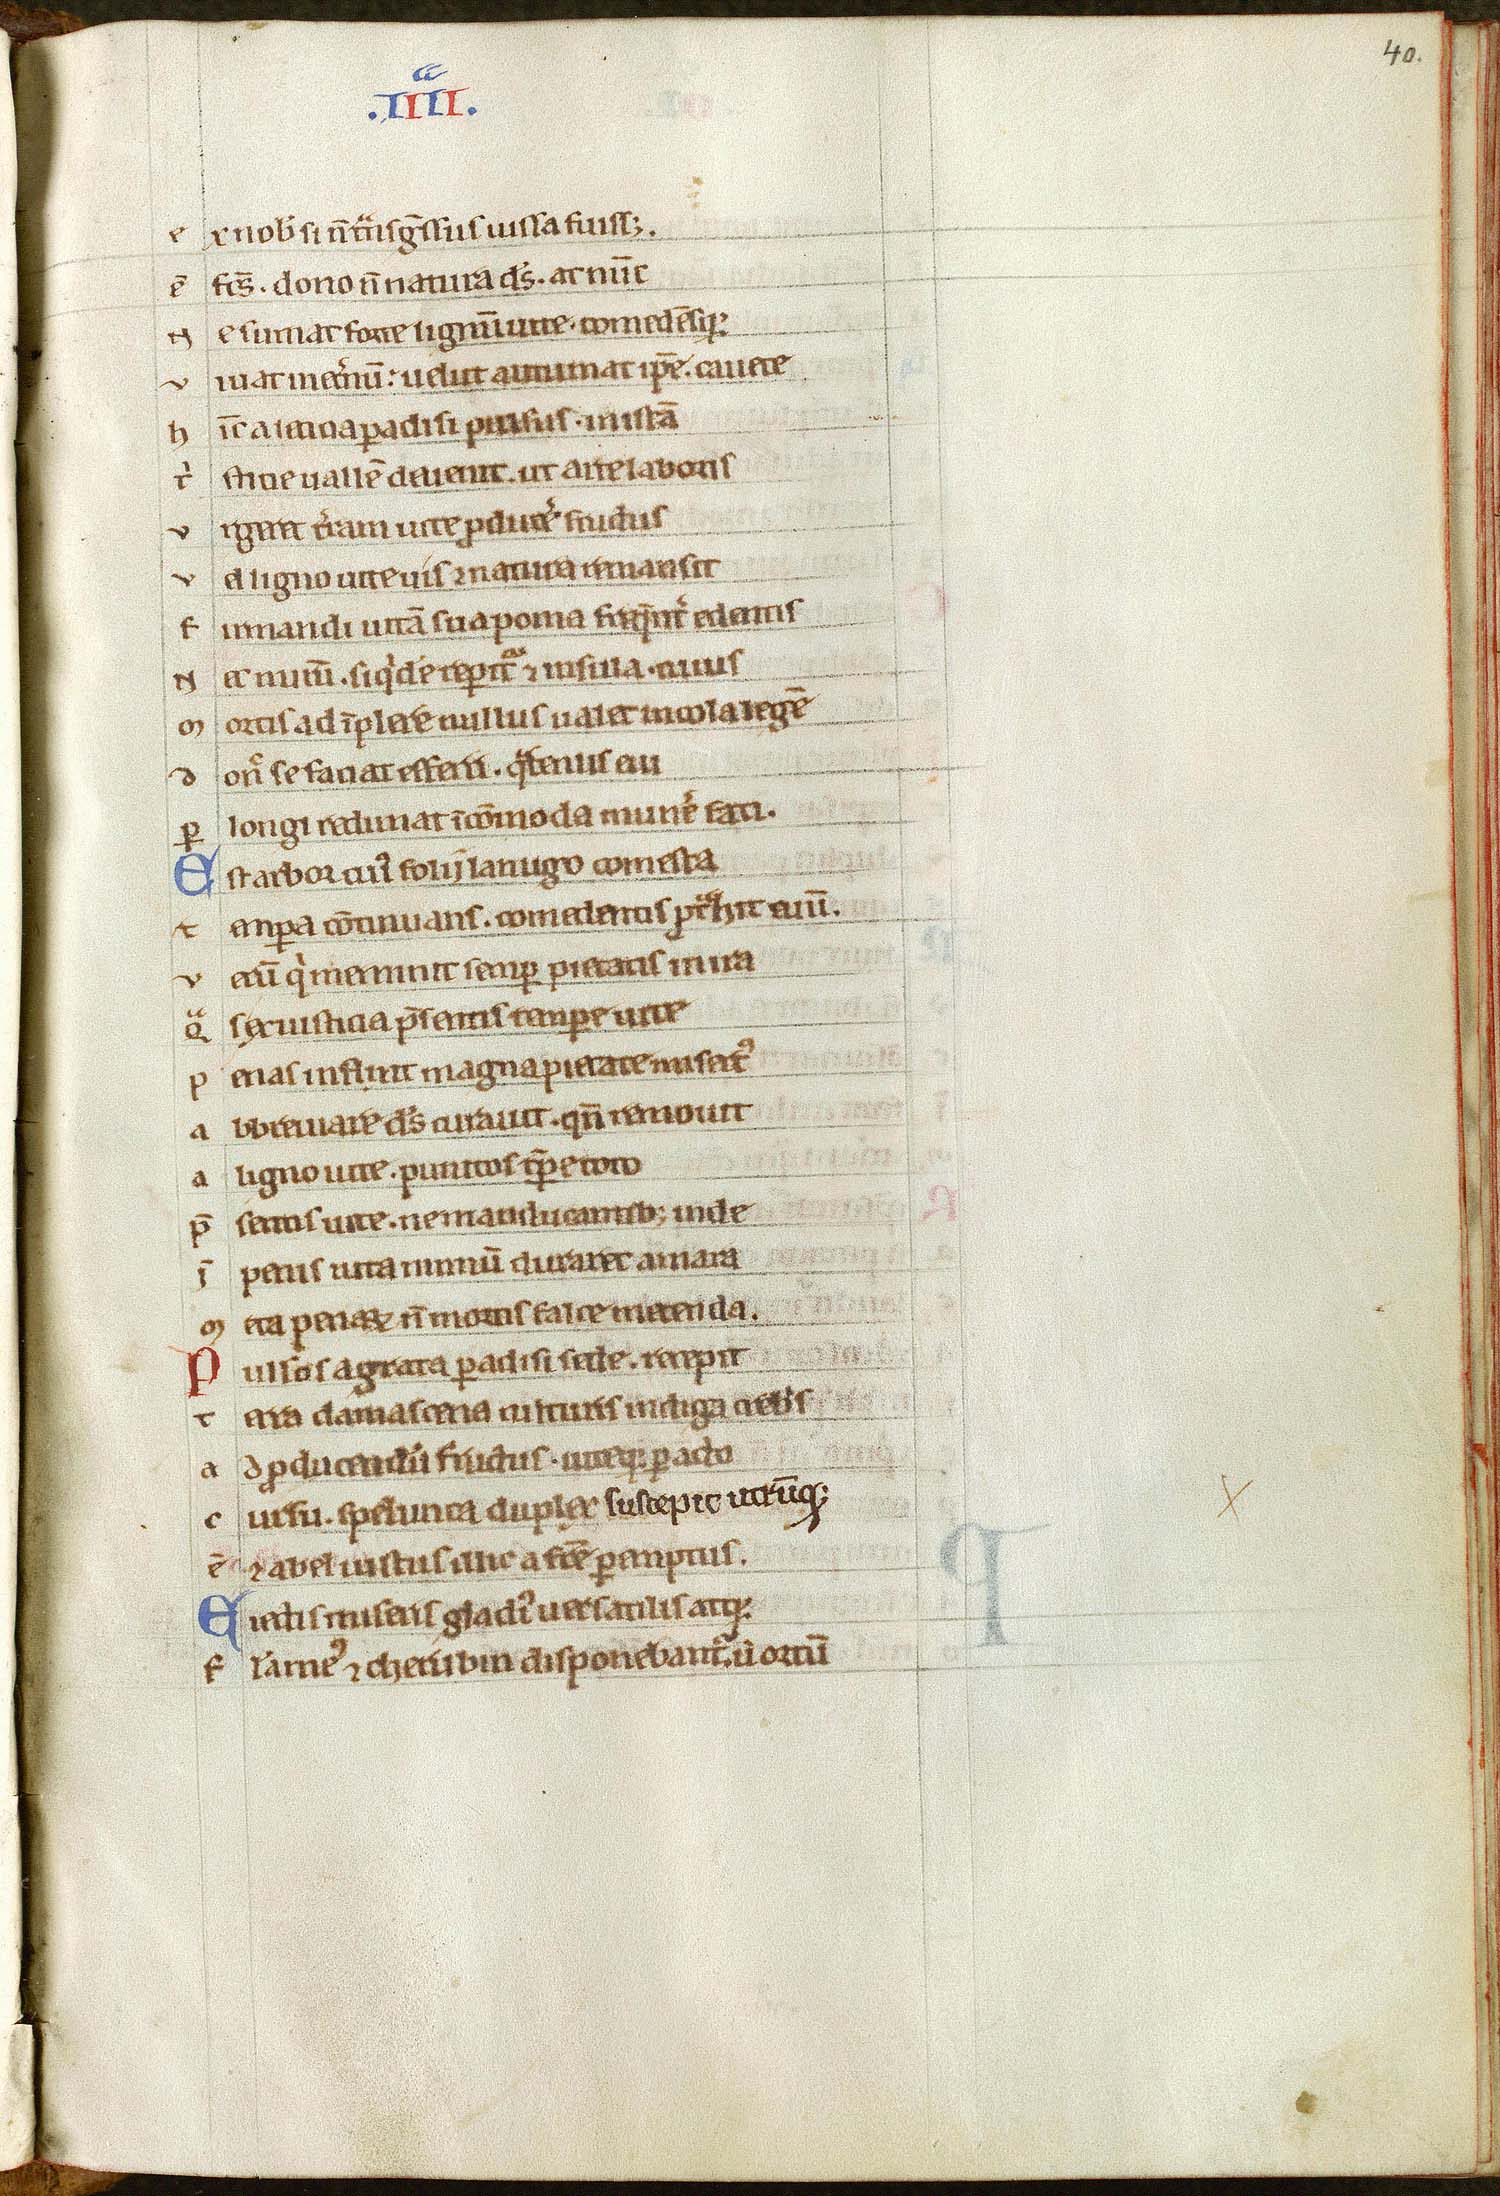 40.
.IIII.ᵃ
e x nob̄ si n̄ t̄nsg̃ssus iussa fuiss;.
ē fc̄s. dono n̄ natura ds̄. ac nūc
N e sumat forte lignū uite. comedēsq;
v iuat inet̓nū: uelut autumat ip̄e. cauete
h īc a leticia ꝑadisi pulsus. in istā
t̓ sticie uallē deuenit. ut arte laboris
v rgeret t̓ram uite ꝓducẽ fructus
v el ligno uite uis ⁊ natura remansit
f irmandi uitā sua poma freq̄nt̓ edentis
N ec mirū. siq̓dē reperit̃ ⁊ insula. cuius
m ortis ad īplere nullus ualet incola legē
d on̓ se faciat efferri. q̓tenus eui
ꝑ longi redimat īcōmoda mune̓ fati.
E st arbor cui᾽ folij lanugo comesta
t empora cōtinuans. comedentis ꝓt̓hit euū.
v erū q̓ meminit semꝑ pietatis in ira
qᵃ s ex iusticia p̄sentis tempore uite
p enas infligit magna pietate misert᾽
a bbreuiare ds̄ curauit. qn̄ remouit
a ligno uite. punitos tp̄e toto
p̄ sentis uite. ne manducantib; inde
ī penis uita nimiū duraret amara
m eta penaꝝ n̄ mortis falce metenda.
P ulsos a grata ꝑadisi sede. recepit
t erra damascena culturis indiga crebris
a d ꝓducendū fructus. uiteq; ꝑacto
c ursu. spelunca duplex suscepit utrūq;
ē ⁊ abel iustus illic a fr̄e ꝑemptus.
E iectis miseris gladi᾽ uersatilis atq;
f lame᾽ ⁊ cherubin disponebant̃. ū ortū